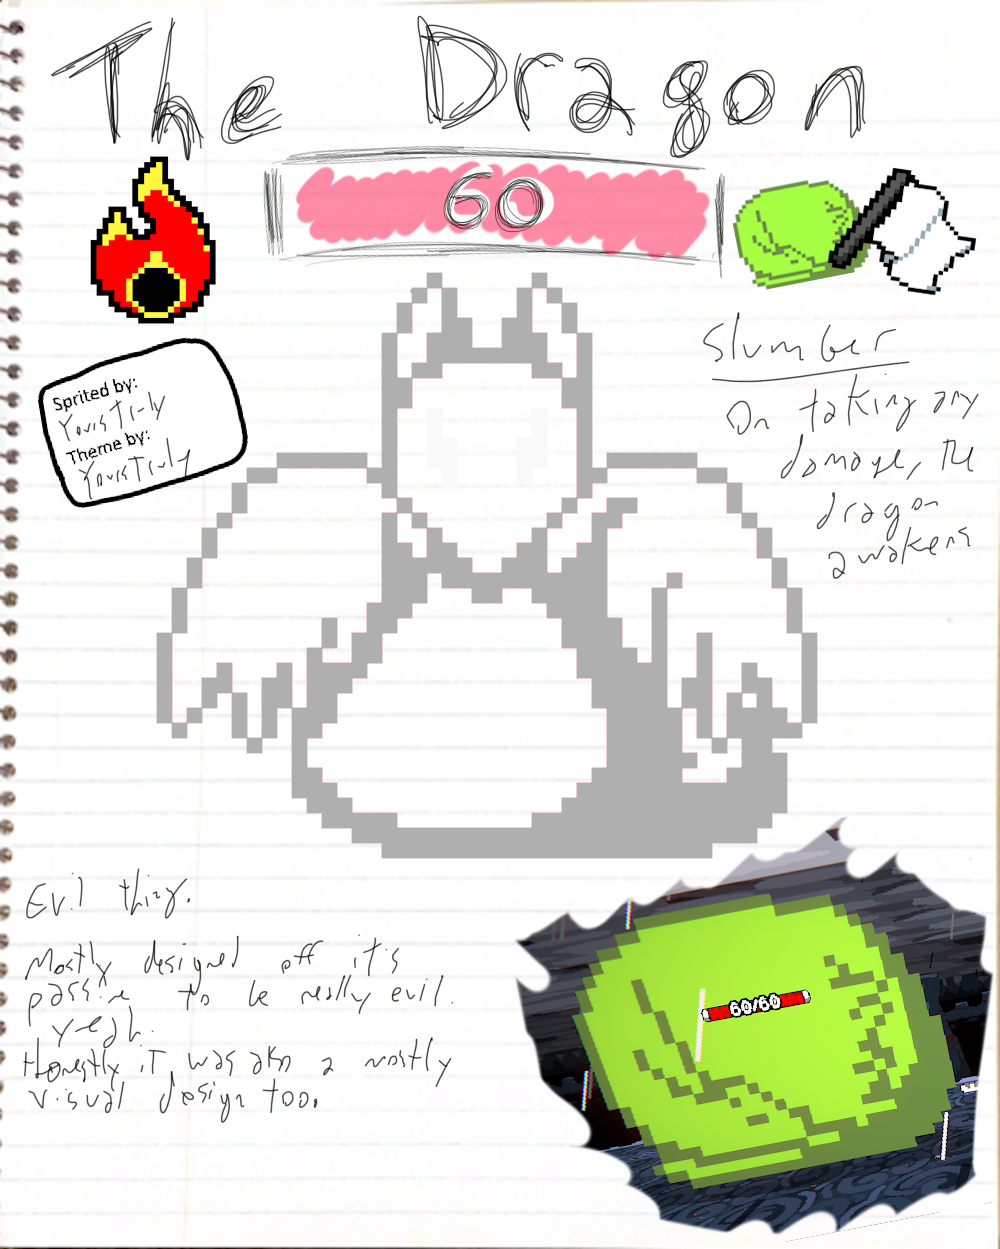 The Dragon
60
Sprited by:
Yours Truly
Theme by:
Yours Truly
Slumber
On taking any
damage, the
dragon
awakens
Evil thing.
Mostly designed off it's
passive to be really evil.
yeah.
Honestly it was also a mostly
visual design too.
60/60